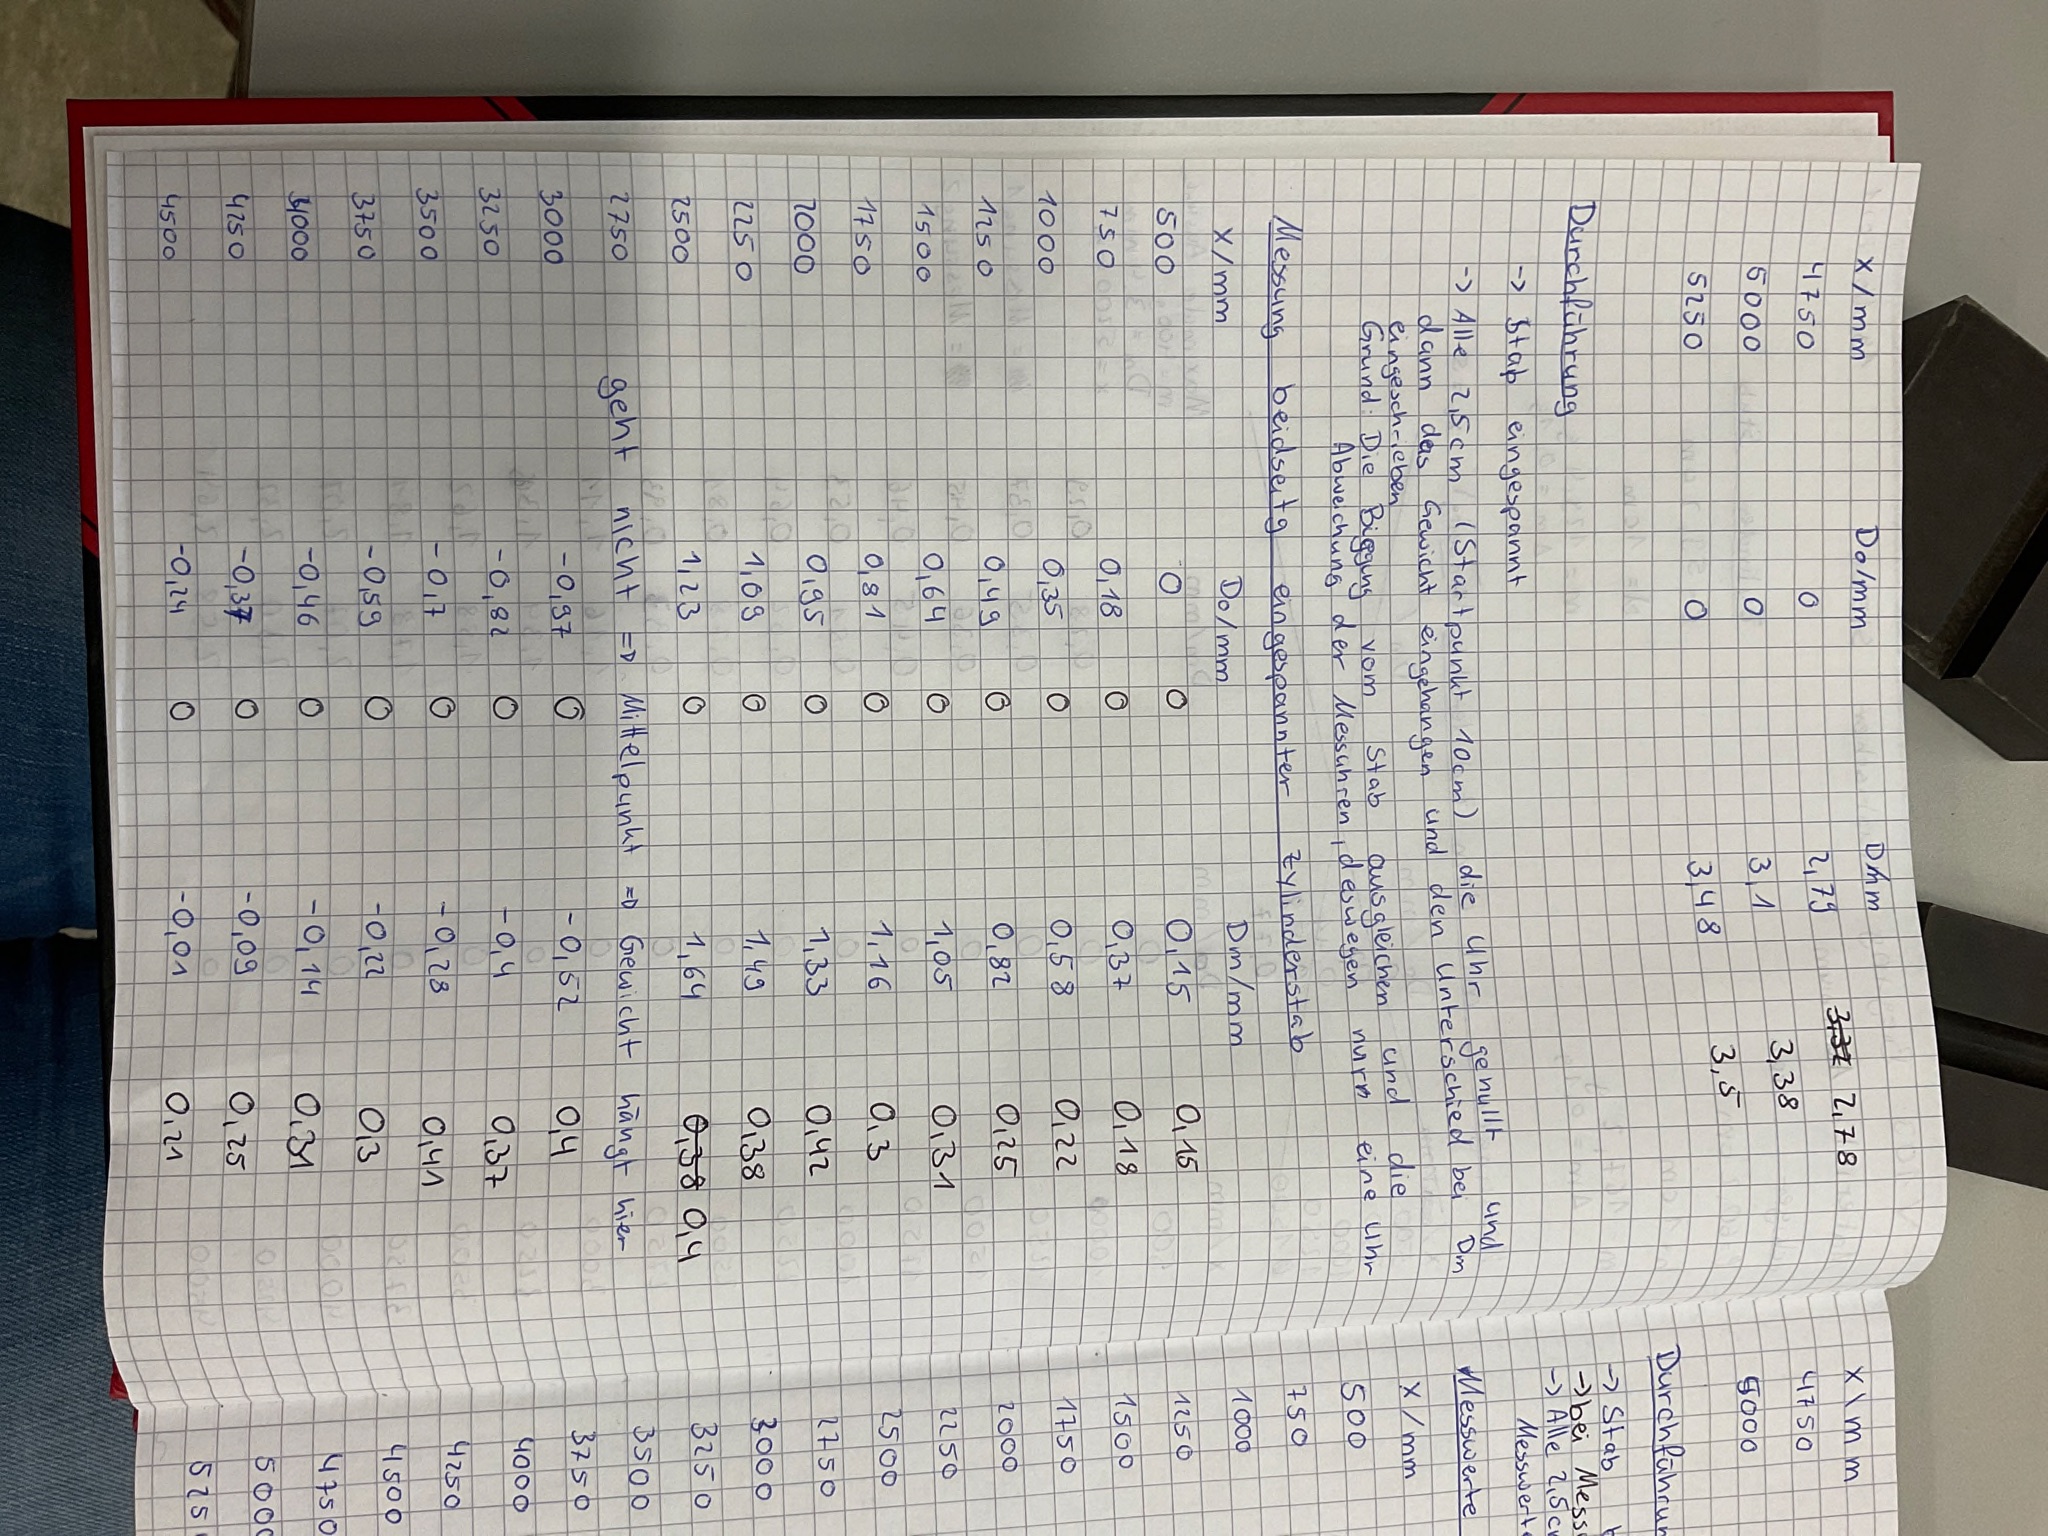 x/mm Do/mm Dmm
4750 0 2,79 3,32 2,78
5000 0 3,1 3,38
5250 0 3,48 3,5
Durchführung
-> Stab eingespannt
-> Alle 2,5cm (Startpunkt 10cm) die Uhr genullt und
dann das Gewicht eingehangen und den Unterschied bei Dm
eingeschrieben
Grund: Die Biegung vom Stab ausgleichen und die
Abweichung der Messuhren, deswegen nurn eine Uhr
Messung beidseitg eingespannter Zylinderstab
x/mm Do/mm Dm/mm
500 0 0 0,15 0,15
750 0,18 0 0,37 0,18
1000 0,35 0 0,58 0,22
1250 0,49 0 0,82 0,25
1500 0,64 0 1,05 0,31
1750 0,81 0 1,16 0,3
2000 0,95 0 1,33 0,42
2250 1,09 0 1,49 0,38
2500 1,23 0 1,64 0,38 0,4
2750 geht nicht => Mittelpunkt => Gewicht hängt hier
3000 -0,97 0 -0,52 0,4
3250 -0,82 0 -0,4 0,37
3500 -0,7 0 -0,28 0,41
3750 -0,59 0 -0,22 0,3
4000 -0,46 0 -0,14 0,31
4250 -0,37 0 -0,09 0,25
4500 -0,24 0 -0,01 0,21
x\mm
4750
5000
Durchführun
-> Stab
-> bei Mess
-> Alle 2,5c
Messwert
Messwerte
x/mm
500
750
1000
1250
1500
1750
2000
2250
2500
2750
3000
3250
3500
3750
4000
4250
4500
4750
5000
525